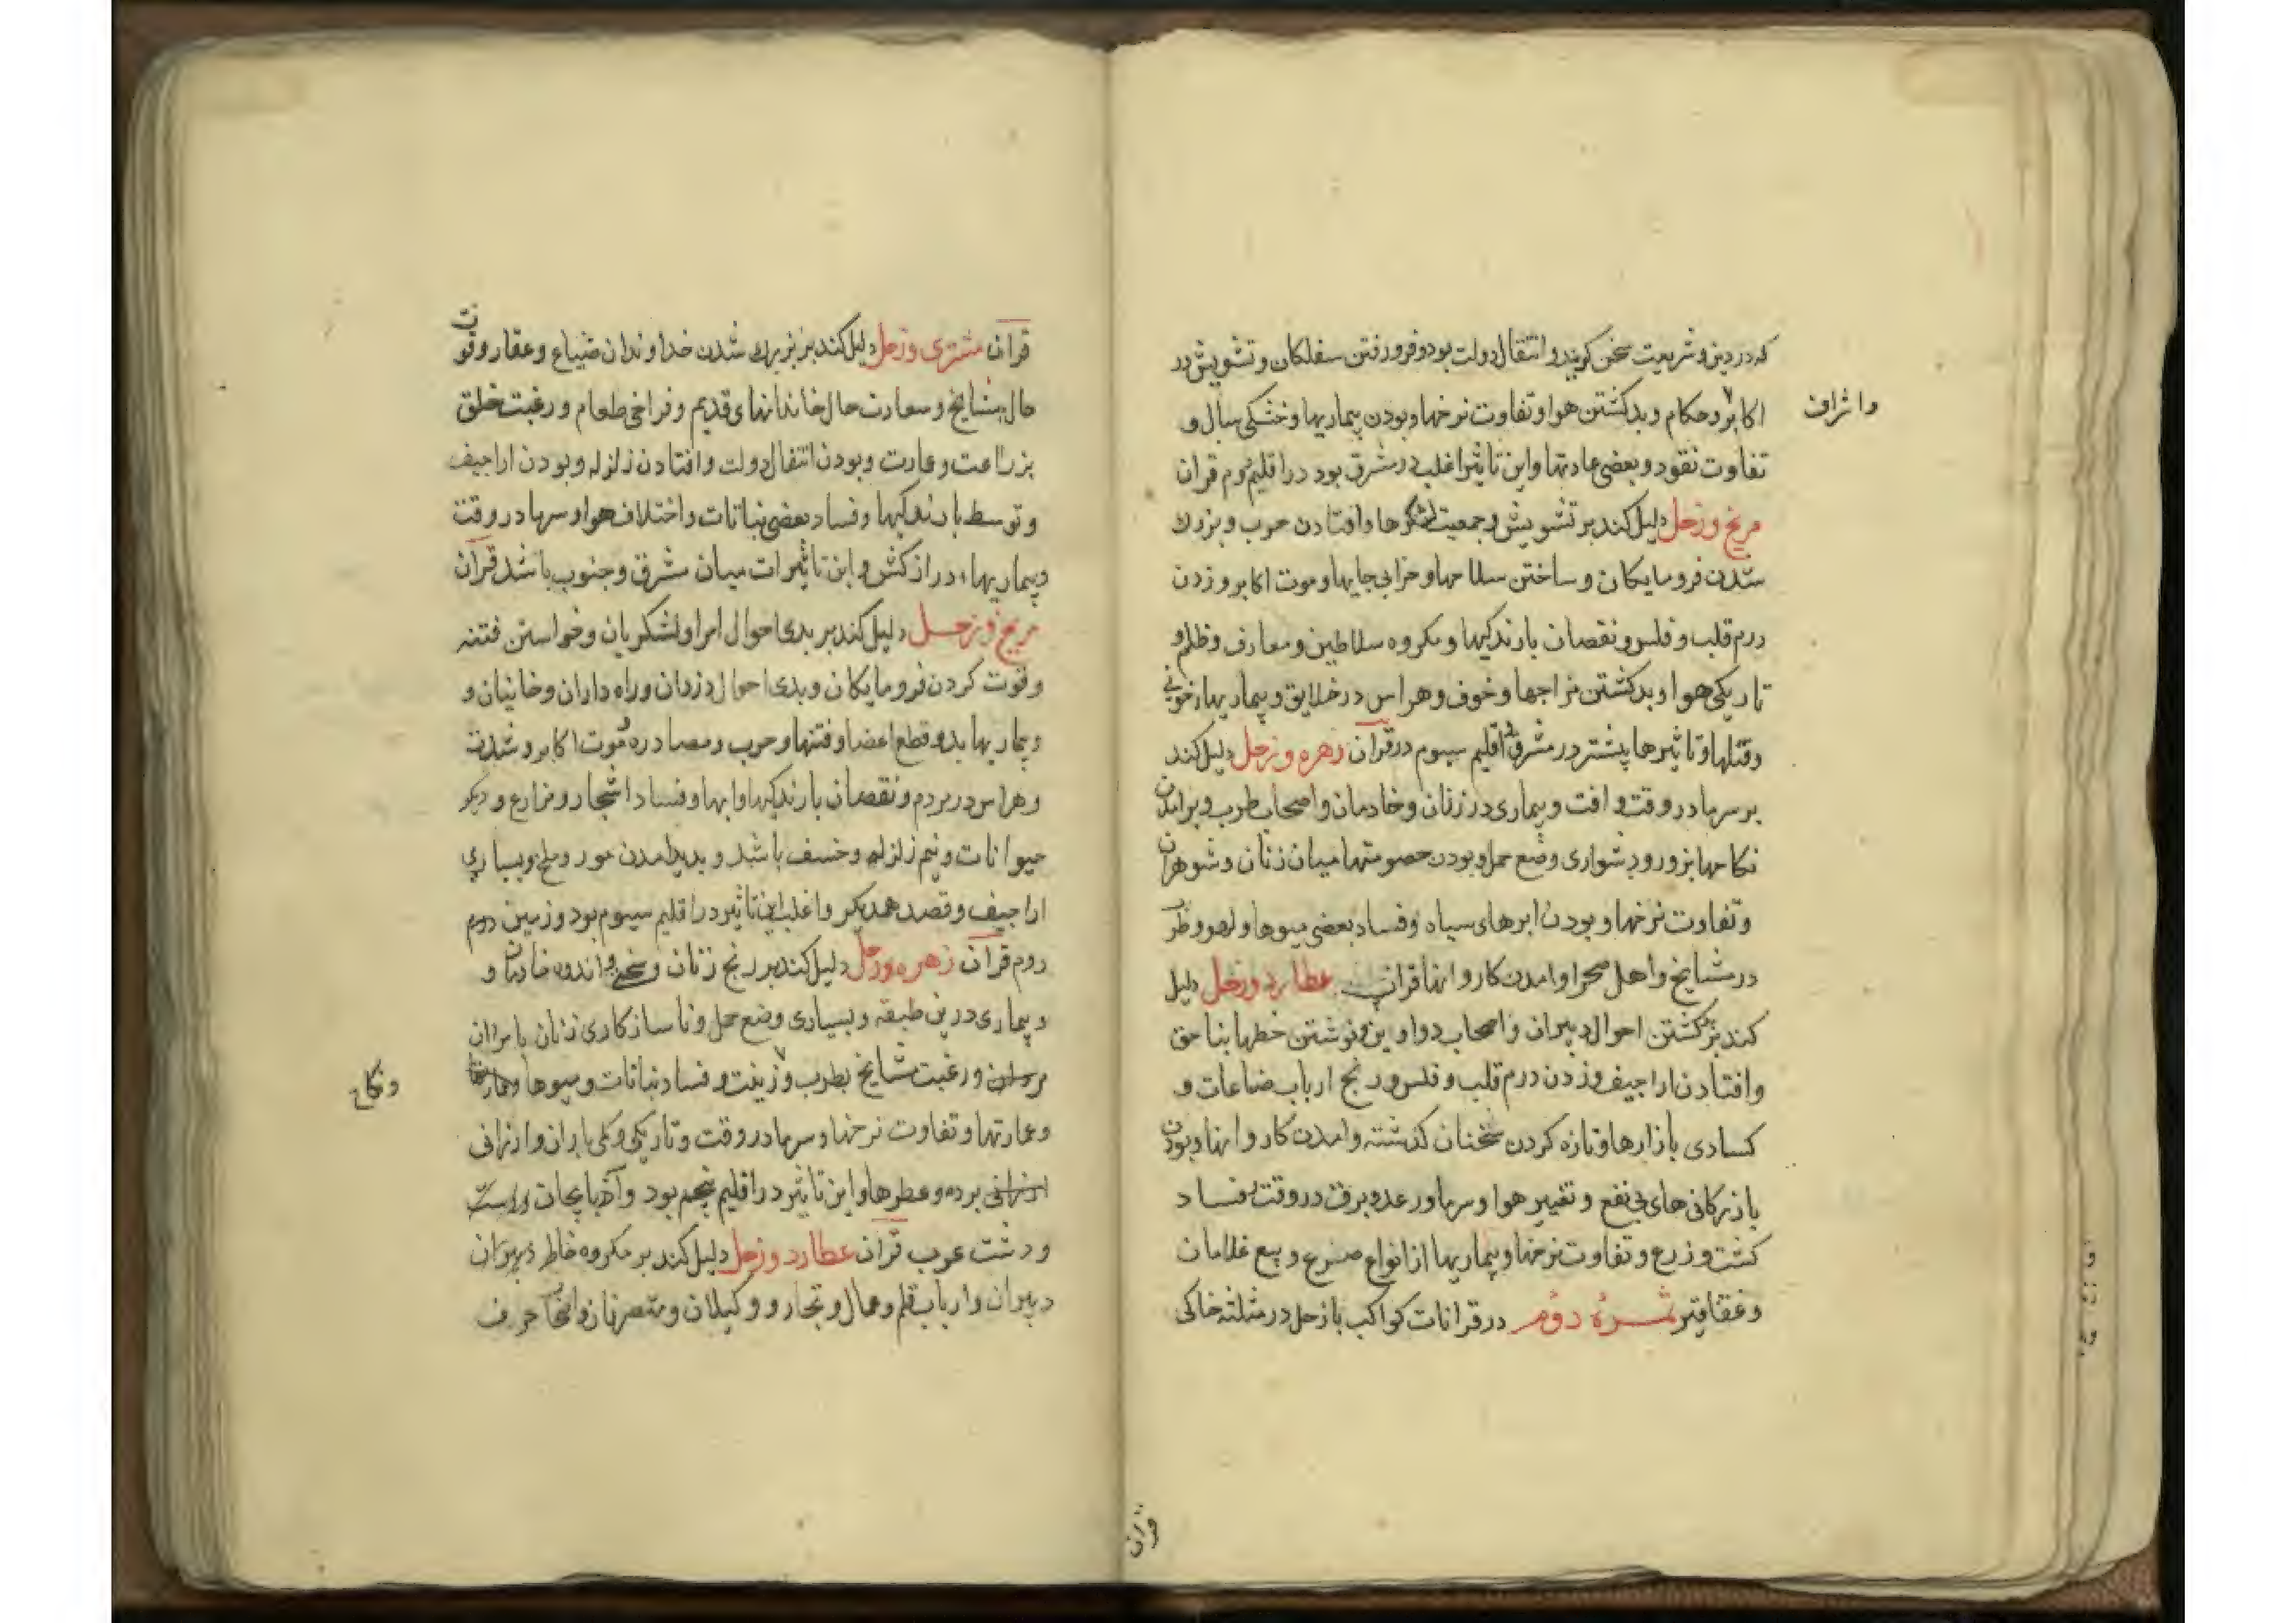 که در دین و شریعت سخن کویند و انتقال دولت بود و فرو رفتن سفلکان و تشویش در
اکابر و حکام و بد کشتن هوا و تفاوت نرخها و بودن بیماریها و خشکی سال و
واشراف
تفاوت نقود و بعضی عادتها و این تاثیر اغلب در مشرق بود در اقلیم دوم قران
مریخ وزحل دلیل کند بر تشویش و جمعیت لشکرها و افتادن حرب و بزرك
شدن فرومایکان و ساختن سلاحها و خرابی جایها و موت اکابر و زدن
درم قلب و فلس و نقصان بارندکیها و مکروه سلاطین و معارف و ظلم و
تاریکی هوا و بد کشتن مزاجها و خوف و هراس در خلایق و بیماریهاء خونی
وقتلها و تاثیرها بیشتر در مشرق اقلیم سیوم در قران زهره و زحل دلیل کند
بر سرما در وقت و افت و بیماری در زنان و خادمان و اصحاب طرب و برامدن
نکاحها بزور و دشواری وضع حمل و بودن خصومتها میان زنان و شوهران
و تفاوت نرخها و بودن ابرهای سیاه و فساد بعضی میوها و لهو و طرب
در مشایخ و اهل صحرا و امدن کاروانها قران عطارد وزحل دلیل
کند بر کشتن احوال دبیران و اصحاب دواوین و نوشتن خطها بناحق
وافتادن اراجیف و زدن درم قلب و فلس و رنج ارباب ضاعات و
کسادی بازارها و تازه کردن سخنان کذشته و امدن کاروانها و بودن
بازرکانی های بی نفع و تغییر هوا و سرما و رعد و برق در وقت و فساد
کشت و زرع و تفاوت نرخها و بیماریها از انواع صرع و بیع غلامان
وعقاقیر ثمرۀ دوم در قرانات کواکب با زحل در مثلثه خاکی
قران
قران مشتری وزحل دلیل کند بر بزرك شدن خداوندان ضیاع و عقار و قوت
حال مشایخ و سعادت حال خاندانهای قدیم و فراخی طعام و رغبت خلق
بزراعت و عمارت و بودن انتقال دولت و افتادن زلزله و بودن اراجیف
و توسط بارندکیها و فساد بعضی نباتات و اختلاف هوا و سرما در وقت
و بیماریهاء دراز کش و این تاثیرات میان مشرق و جنوب باشد قران
مریخ و زحل دلیل کند بر بدی احوال امرا و لشکریان و خواستن فتنه
و قوت کردن فرومایکان و بدی احوال دزدان و راه داران و خانیان و
و بیماریها بد و قطع اعضا و فتنها و حرب و مصادره و موت اکابر و شدت
و هراس در مردم و نقصان بارندکیها و ابها و فساد اشجار و مزارع و دیکر
حیوانات و بیم زلزله و خسف باشد و بدید امدن مور و ملخ و بسیاری
اراجیف و قصد همدیکر و اغلب این تاثیر در اقلیم سیوم بود و زمین دوم
روم قران زهره وزحل دلیل کند بر رنج زنان و اندوه خادمان و
و بیماری درین طبقه و بسیاری وضع حمل و ناسازکاری زنان با مردان
و رغبت مشایخ بطرب و زینت و فساد نباتات و میوها
ونکاح
و عمارتها و تفاوت نرخها و سرما در وقت و تاریکی و کمی باران و ارزانی
ارزانی برده و عطرها و این تاثیر در اقلیم پنجم بود و اذربایجان و راست
و دشت عرب قران عطارد و زحل دلیل کند بر مکروه خاطر دبیران
دبیران و ارباب قلم و عمال و تجار و وکیلان و متصرفان و اصحاب حرف